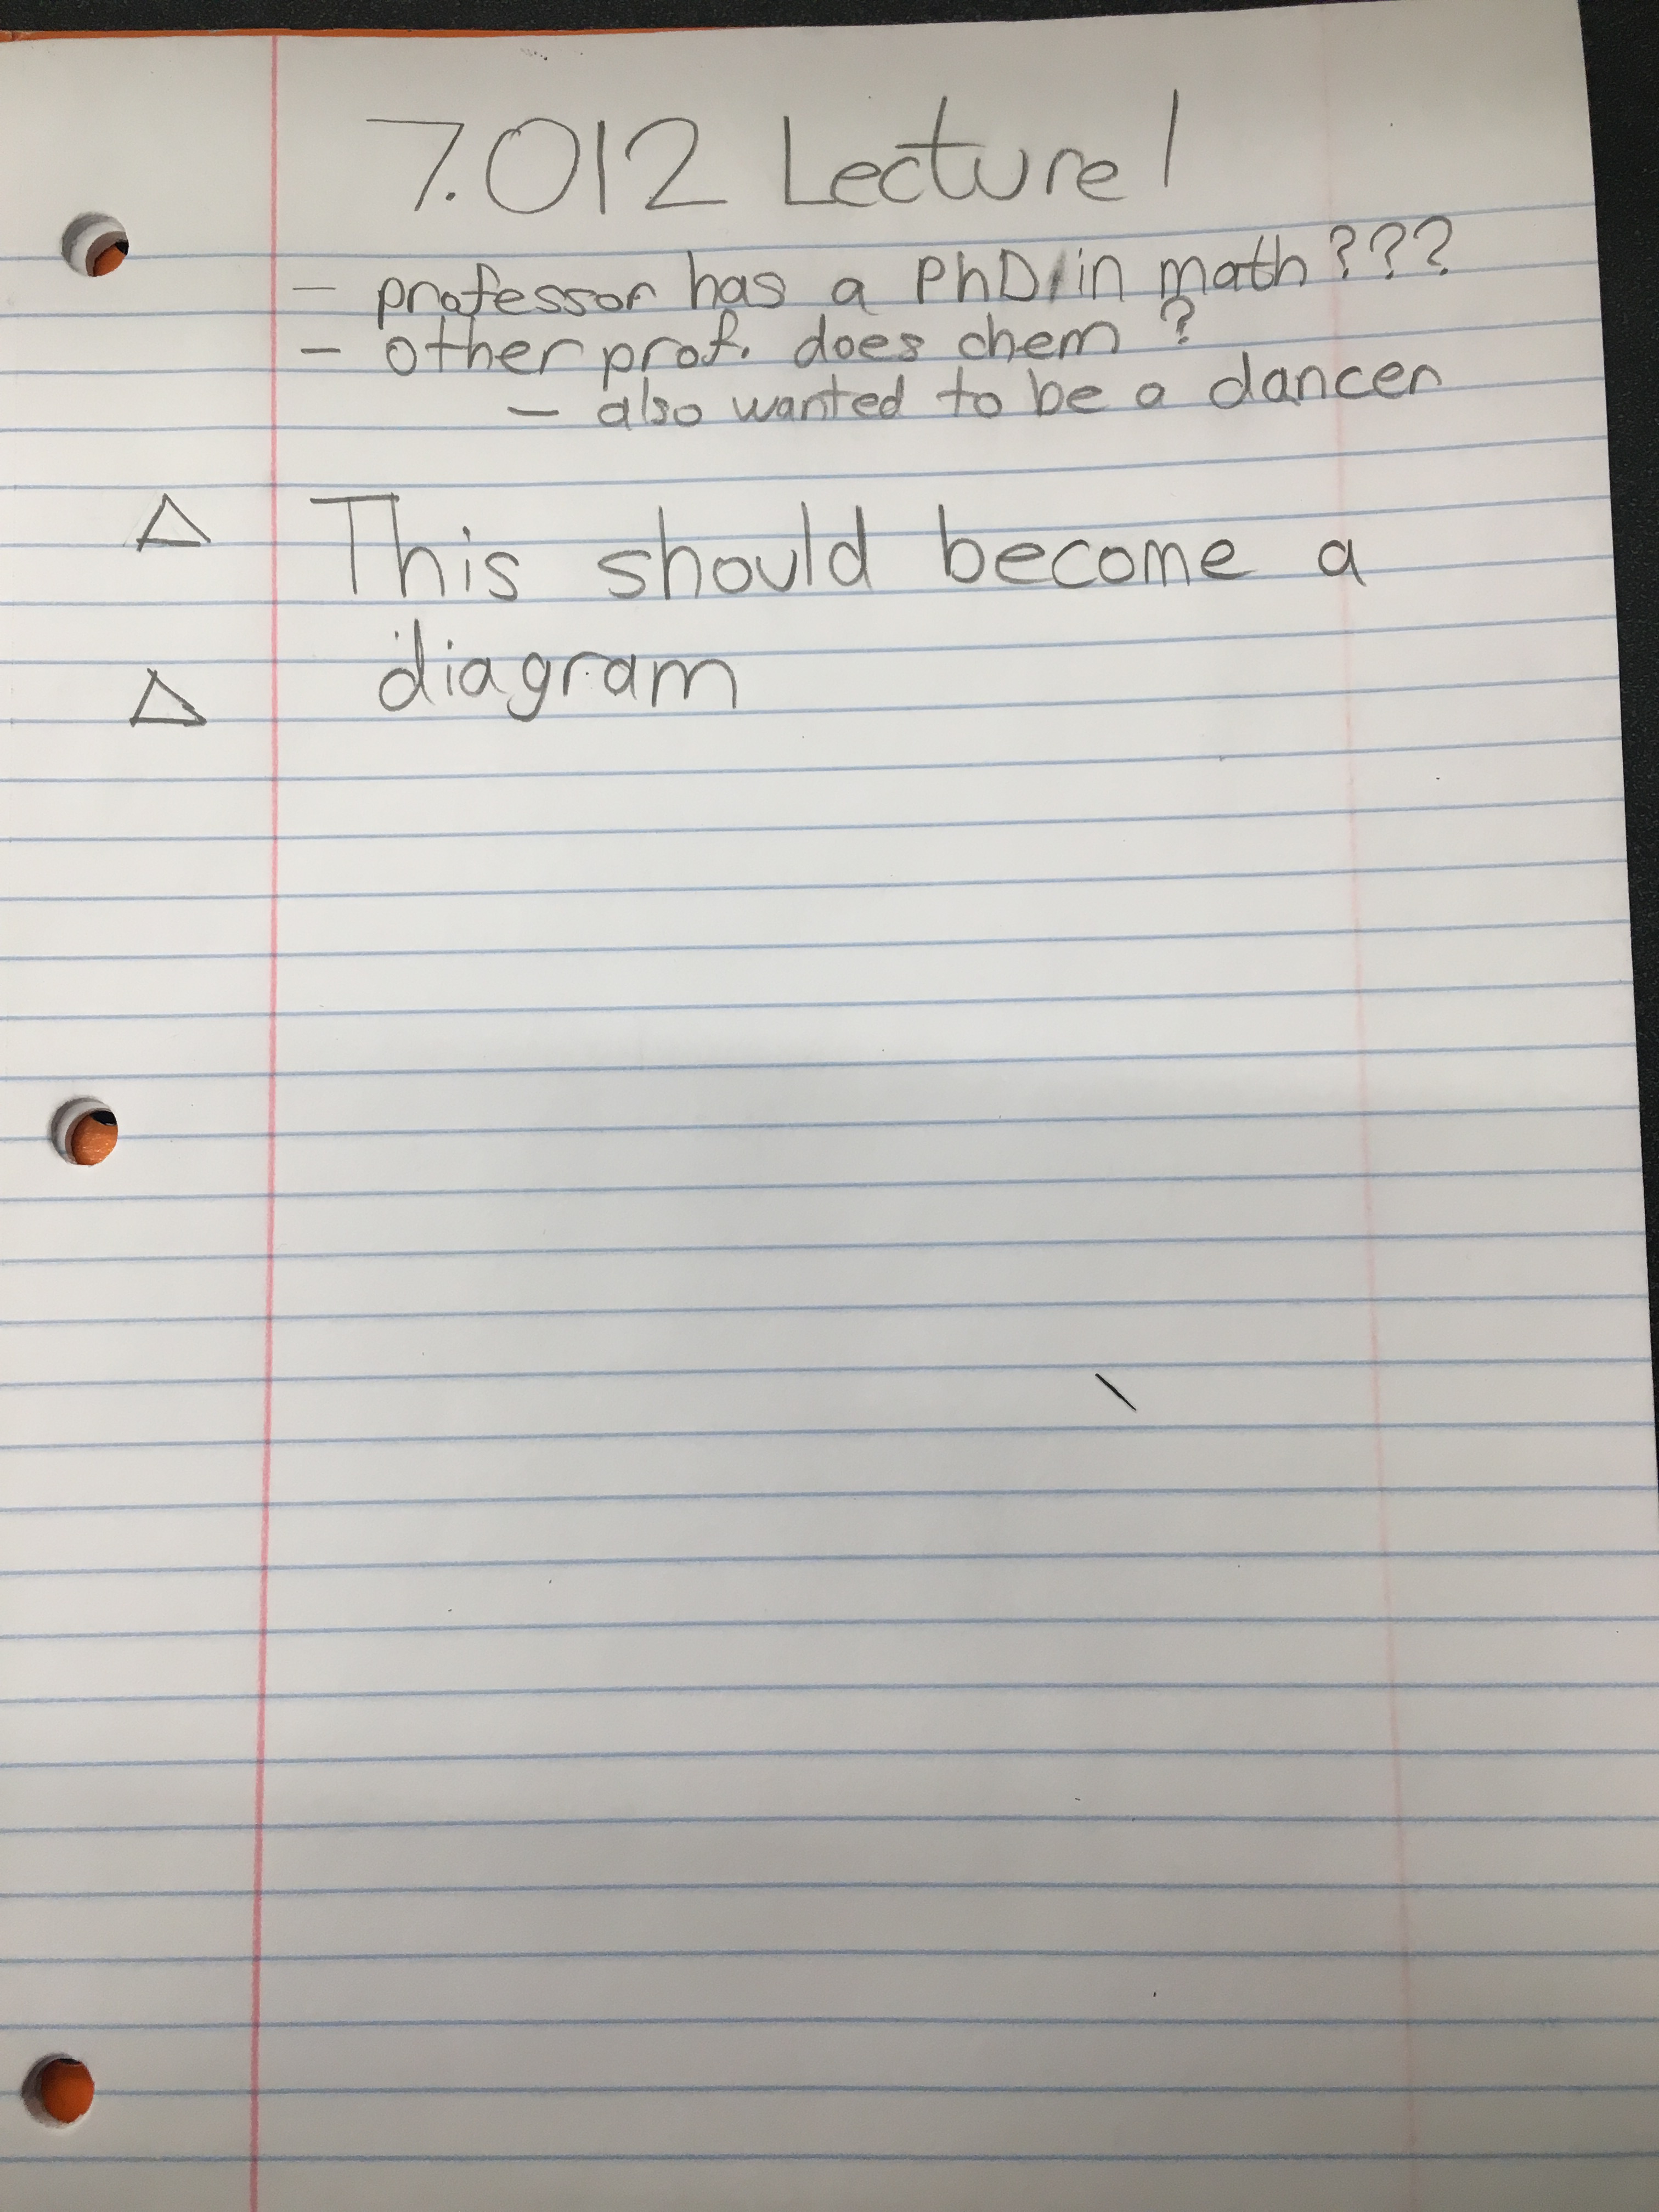 7.012 Lecture 1
- professor has a PhD in math ???
- other prof. does chem ?
- also wanted to be a dancer
This should become a
diagram